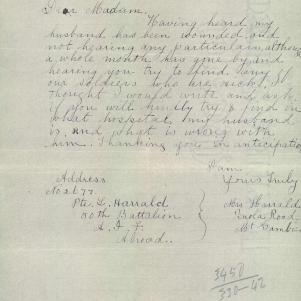 Dear Madam.
Having heard my
husband has been wounded, and
not hearing any particulars, although
a whole month has gone by and
hearing you try to find any
our soldiers who are sick, I
thought I would write and ask
if you will kindly try & find in
what hospital my husband
is, and what is wrong with
him. Thanking you in anticipation
I am
Address Yours Truly
No 2677. Mrs Harrald
Pte. L. Harrald Road
Battalion Mt
A. I. F.
Abroad..
3450
330-42